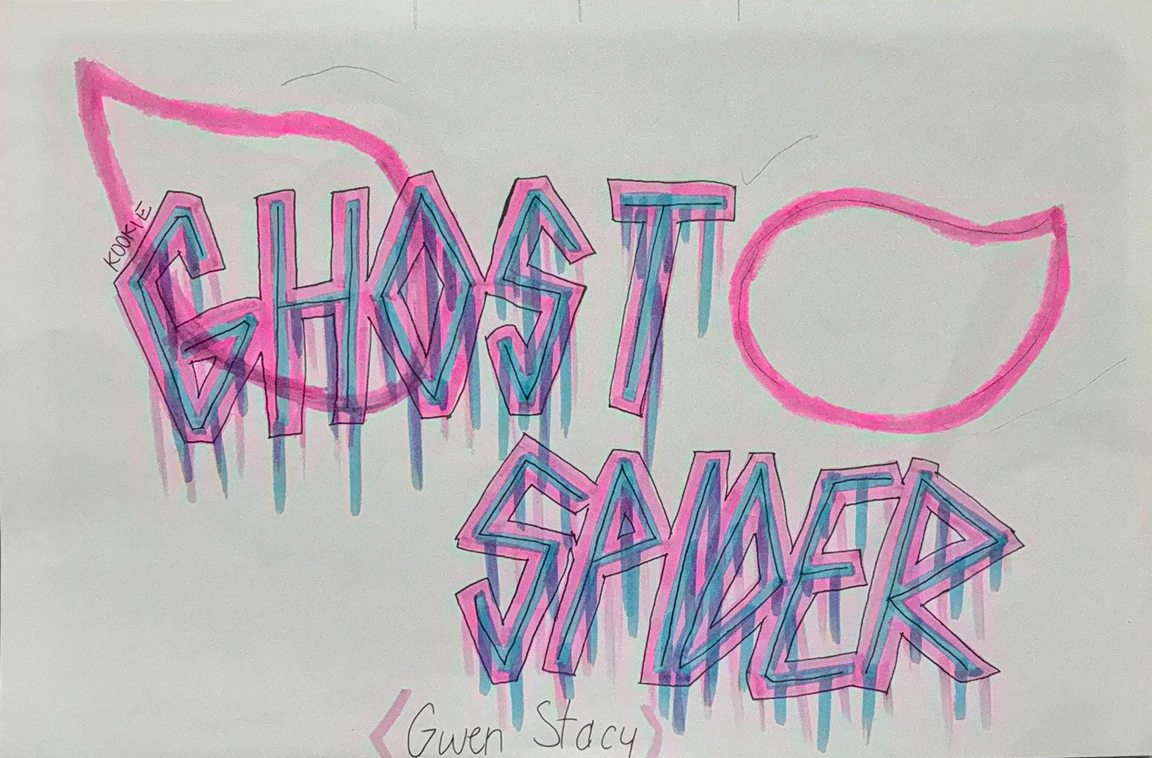 KOOKIE
GHOST
SPIDER
<Gwen Stacy>